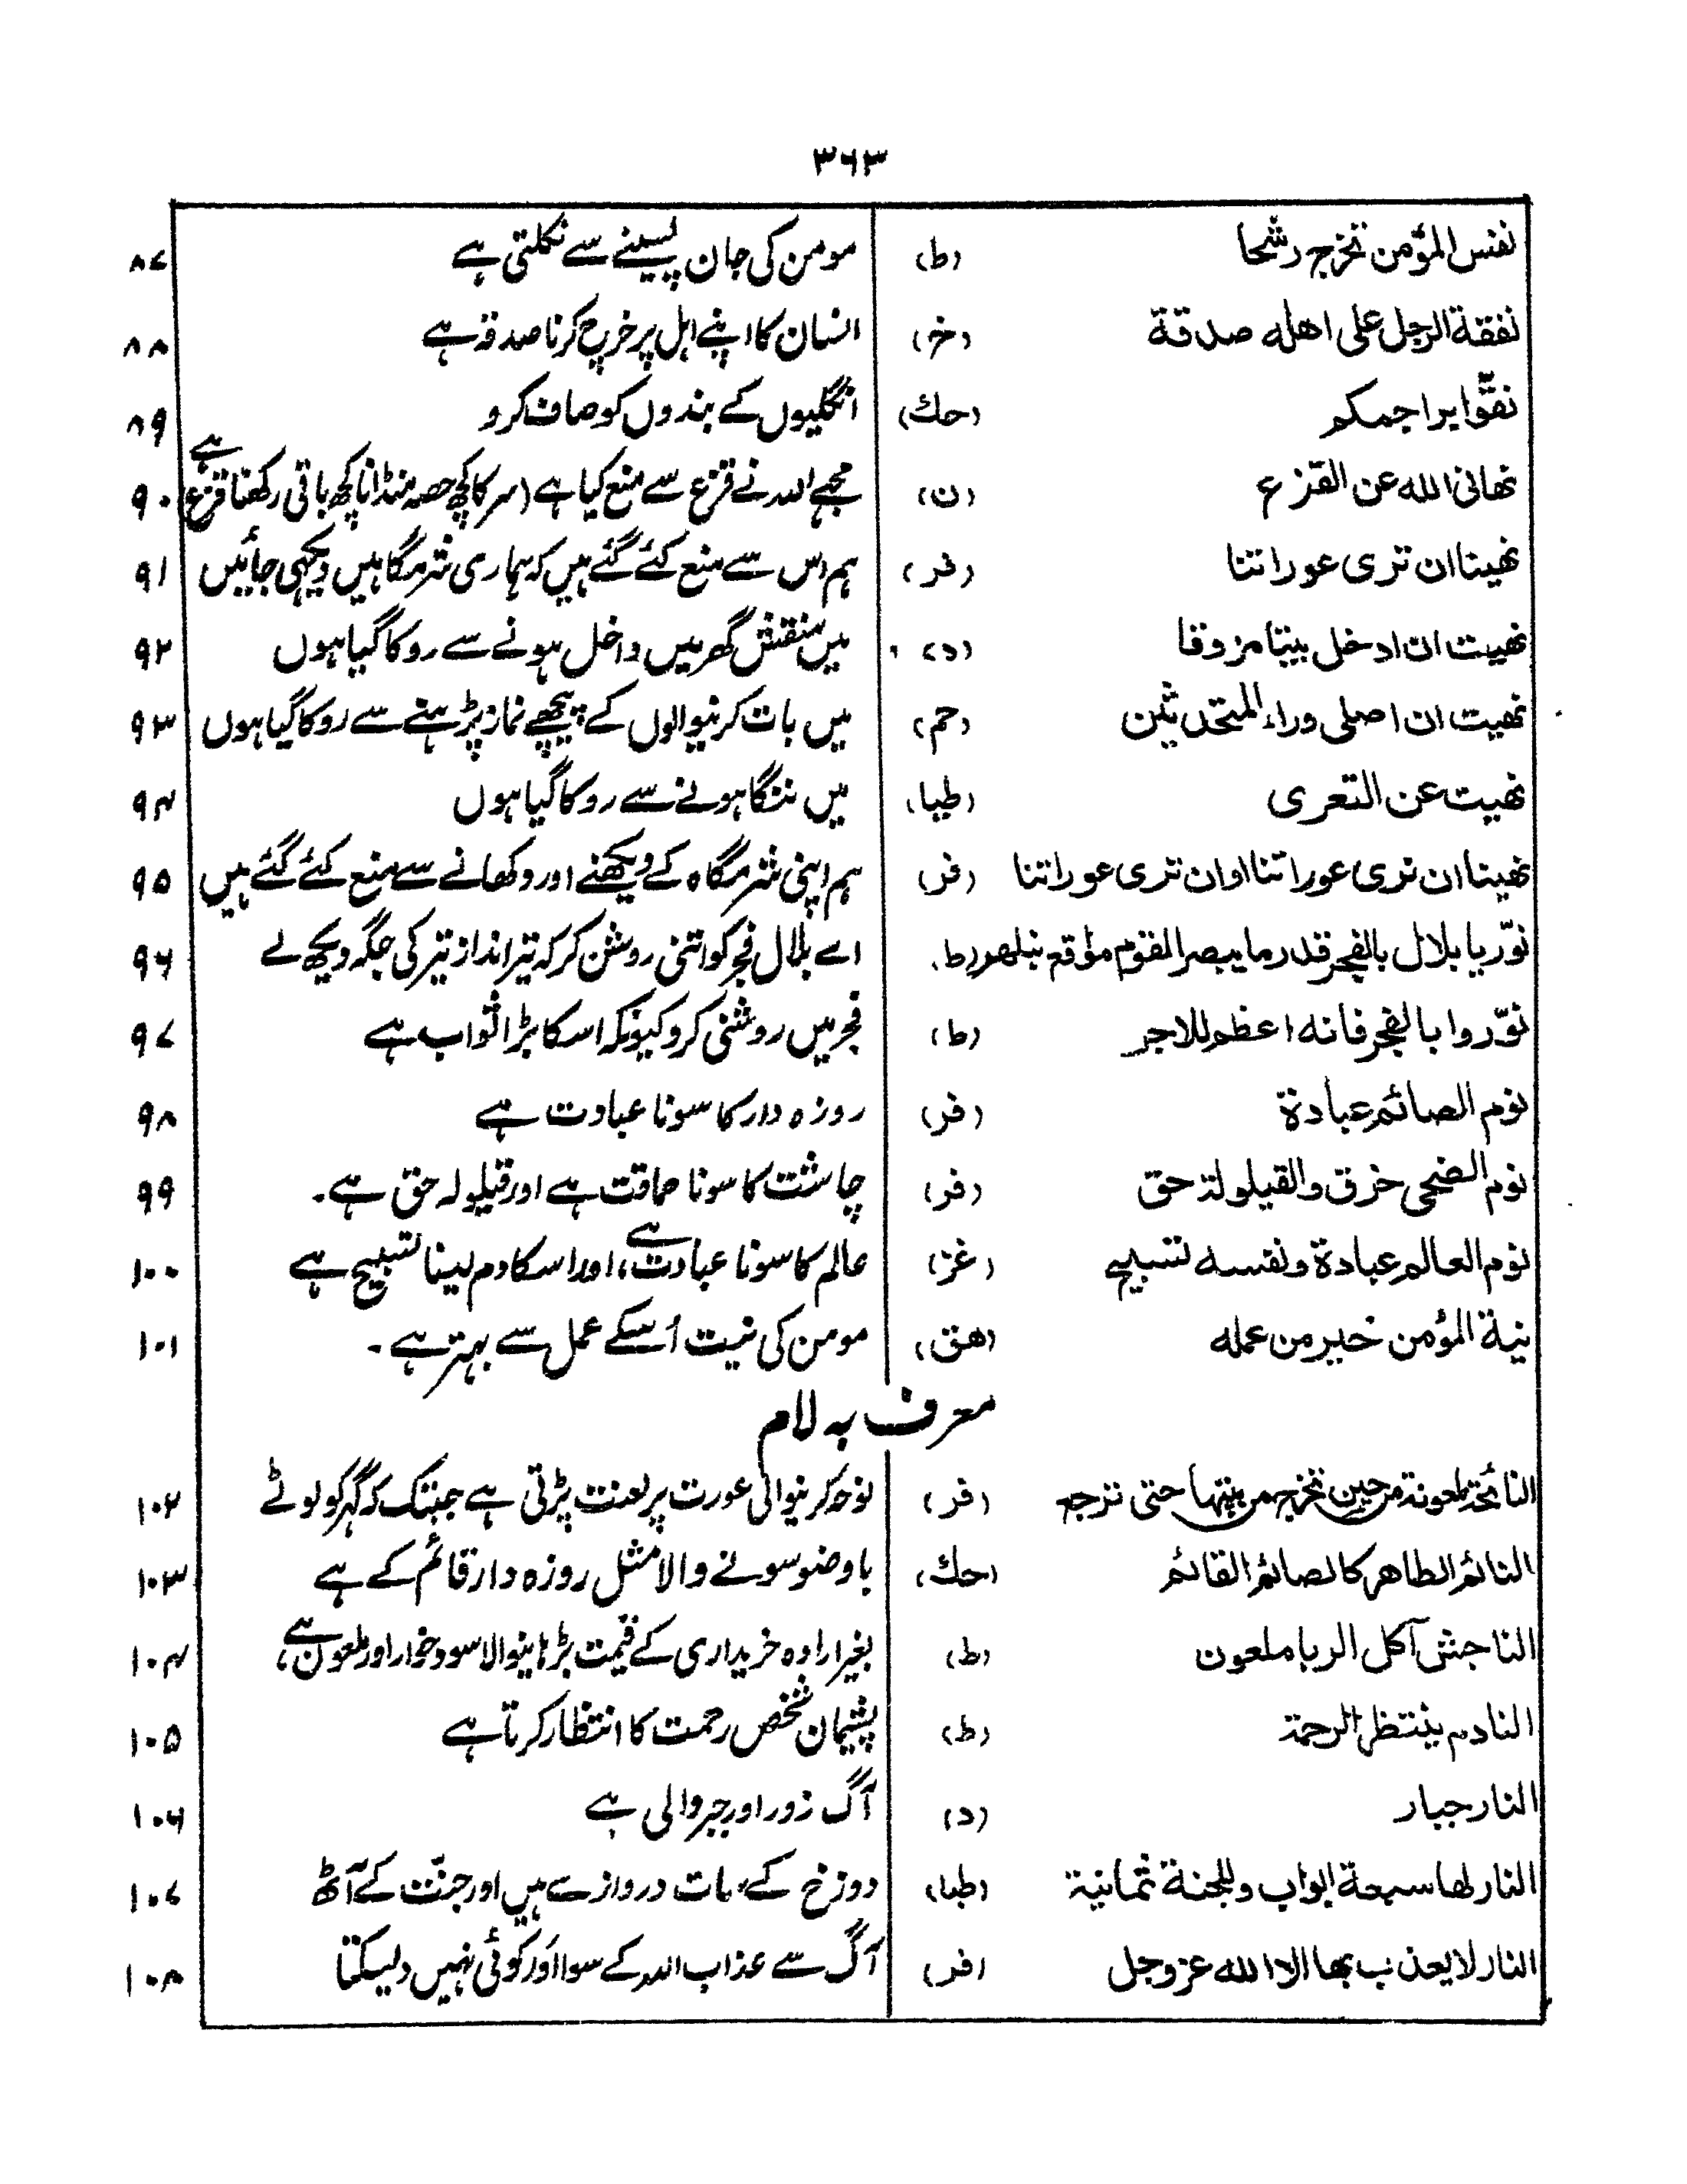 ۳۶۳
نفس المؤمن تخرج رشحا (ط) مومن کی جان پسینے سے نکلتی ہے ۸۷
نفقة الرجل علی اهله صدقة (خ) انسان کا اپنے اہل پر خرچ کرنا صدقہ ہے ۸۸
نقّوا براجمكم (حك) انگلیوں کے بندوں کو صاف کرو ۸۹
نهانی الله عن القزع (ن) مجھے اللہ نے قزع سے منع کیا ہے (سر کا کچھ حصہ منڈانا کچھ باقی رکھنا قزع ہے ۹۰
نهینا ان تری عوراتنا (فر) ہم اس سے منع کئے گئے ہیں کہ ہماری شرمگاہیں دیکھی جائیں ۹۱
نهیت ان ادخل بیتا مزوقا (د) میں منقش گھر میں داخل ہونے سے روکا گیا ہوں ۹۲
نهیت ان اصلی وراء المتحدثین (حم) میں بات کرنیوالوں کے پیچھے نماز پڑہنے سے روکا گیا ہوں ۹۳
نهیت عن التعری (طیا) میں ننگا ہونے سے روکا گیا ہوں ۹۴
نهینا ان نری عوراتنا او ان تری عوراتنا (فر) ہم اپنی شرمگاہ کے دیکھنے اور دکھانے سے منع کئے گئے ہیں ۹۵
نوّر یا بلال بالفجر قدر ما یبصر القوم مواقع نبلهم (ط) اے بلال فجر کو اتنی روشن کر کہ تیر انداز تیر کی جگہ دیکھ لے ۹۶
نوّروا بالفجر فانه اعظم للاجر (ط) فجر میں روشنی کرو کیونکہ اسکا بڑا ثواب ہے ۹۷
نوم الصائم عبادة (فر) روزہ دار کا سونا عبادت ہے ۹۸
نوم الضحی خرق والقیلولة حق (فر) چاشت کا سونا حماقت ہے اور قیلولہ حق ہے۔ ۹۹
نوم العالم عبادة ونفسه تسبیح (غز) عالم کا سونا عبادت ہے، اور اسکا دم لینا تسبیح ہے ۱۰۰
نیة المؤمن خیر من عمله (هق) مومن کی نیت اُسکے عمل سے بہتر ہے۔ ۱۰۱
معرف بہ لام
النائحة ملعونة من حین تخرج من بیتها حتی ترجع (فر) نوحہ کرنیوالی عورت پر لعنت پڑتی ہے جبتک کہ گہر کو لوٹے ۱۰۲
النائم الطاهر كالصائم القائم (حك) باوضو سونے والا مثل روزہ دار قائم کے ہے ۱۰۳
الناجش آكل الربا ملعون (ط) بغیر ارادہ خریداری کے قیمت بڑہانیوالا سود خوار اور ملعون ہے ۱۰۴
النادم ینتظر الرحمة (ط) پشیمان شخص رحمت کا انتظار کرتا ہے ۱۰۵
النار جبار (د) آگ زور اور جبر والی ہے ۱۰۶
النار لها سبعة ابواب وللجنة ثمانیة (طبا) دوزخ کے سات دروازے ہیں اور جنّت کے آٹھ ۱۰۷
النار لا یعذب بها الا الله عز وجل (فر) آگ سے عذاب اللہ کے سوا اَور کوئی نہیں دیسکتا ۱۰۸